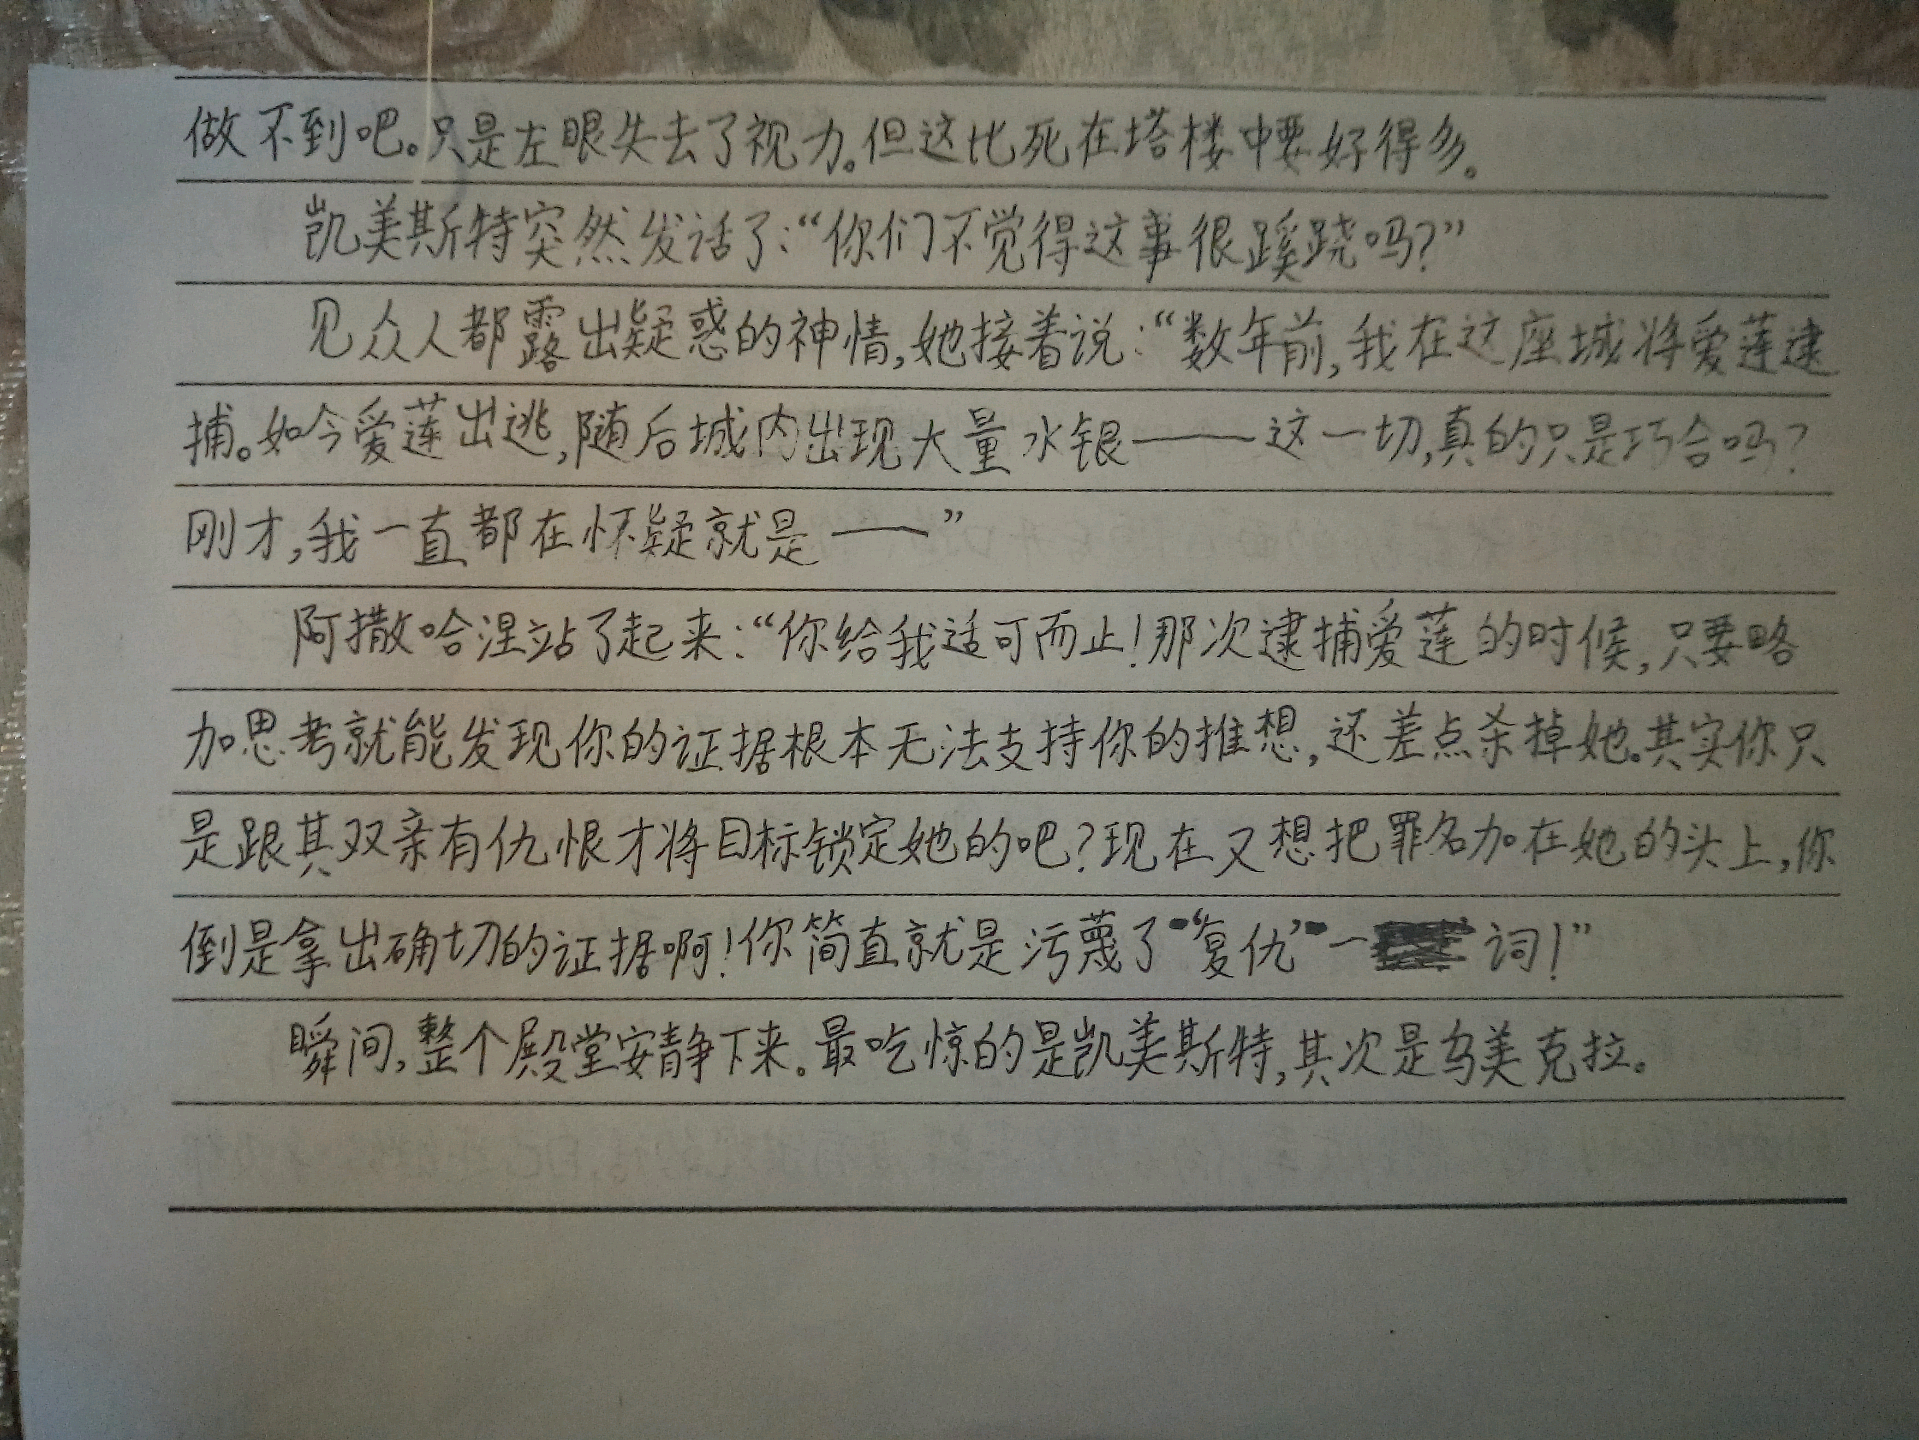 做不到吧。只是左眼失去了视力。但这比死在塔楼中要好得多。
凯美斯特突然发话了：“你们不觉得这事很蹊跷吗？”
见众人都露出疑惑的神情，她接着说：“数年前，我在这座城将爱莲逮
捕。如今爱莲出逃，随后城内出现大量水银——这一切，真的只是巧合吗？
刚才，我一直都在怀疑就是——”
阿撒哈涅站了起来：“你给我适可而止！那次逮捕爱莲的时候，只要略
加思考就能发现你的证据根本无法支持你的推想，还差点杀掉她。其实你只
是跟其双亲有仇恨才将目标锁定她的吧？现在又想把罪名加在她的头上，你
倒是拿出确切的证据啊！你简直就是污蔑了“复仇”一词！”
瞬间，整个殿堂安静下来。最吃惊的是凯美斯特，其次是乌美克拉。